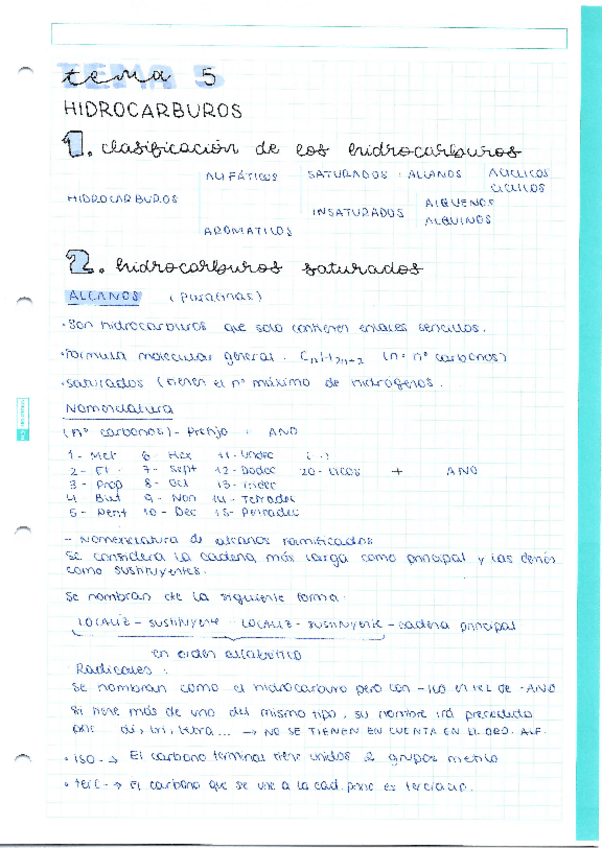 tema 5
HIDROCARBUROS
1. clasificación de los hidrocarburos
ALIFÁTICOS SATURADOS : ALCANOS ACÍCLICOS
CÍCLICOS
HIDROCARBUROS
INSATURADOS ALQUENOS
ALQUINOS
AROMÁTICOS
2. hidrocarburos saturados
ALCANOS (Parafinas)
· Son hidrocarburos que solo contienen enlaces sencillos.
· Fórmula molecular general : CnH2n+2 (n = nº carbonos)
· Saturados (tienen el nº máximo de hidrógenos.
Nomenclatura
(nº carbonos) - Prefijo + ANO
1 - Met 6 - Hex 11 - Undec (...)
2 - Et 7 - Hept 12 - Dodec 20 - Eicos + ANO
3 - Prop 8 - Oct 13 - Tridec
4 But 9 - Non 14 - Tetradec
5 - Pent 10 - Dec 15 - Pentadec
- Nomenclatura de alcanos ramificados
Se considera la cadena más larga como principal y las demás
como sustituyentes.
Se nombran de la siguiente forma:
LOCALIZ - sustituyente - LOCALIZ - SUSTITUYENTE - cadena principal
en orden alfabético
Radicales :
Se nombran como el hidrocarburo pero con -ILO en vez de -ANO
Si tiene más de uno del mismo tipo, su nombre irá precedido
por di, tri, tetra... → NO SE TIENEN EN CUENTA EN EL ORD. ALF.
· ISO - → El carbono terminal tiene unidos 2 grupos metilo
· terc - → El carbono que se une a la cad. princ es terciario.